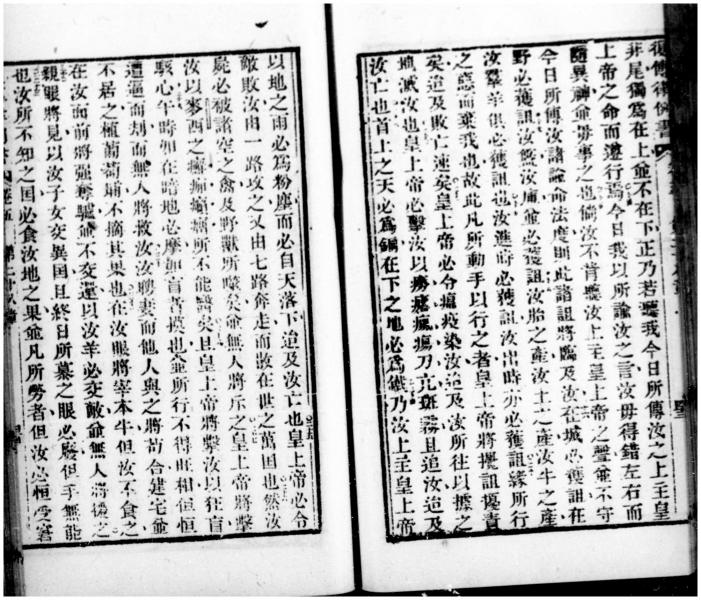 非尾獨爲在上並不在下正乃若聽我今日所傳汝之上主皇
上帝之命而遵行焉今日我以所諭汝之言汝毋得錯左右而
隨異神並毋事之也倘汝不肯聽汝上主皇上帝之聲並不守
今日所傳汝諸諭命法度則此諸詛將臨及汝在城必獲詛在
野必獲詛汝筐汝庫並必獲詛汝胎之產汝土之產汝牛之產
汝羣羊俱必獲詛也汝進時必獲詛汝出時亦必獲詛緣所行
之惡而棄我也故此凡所動手以行之者皇上帝將擺詛擾責
矣迨及敗亡速矣皇上帝必令瘟疫染汝迨及汝所往以據之
地滅汝也皇上帝必擊汝以癆瘧瘋瘍刀亢斑霧且追汝迨及
汝亡也首上之天必爲銅在下之地必爲鐵乃汝上主皇上帝
以地之雨必爲粉塵而必自天落下迨及汝亡也皇上帝必令
敵敗汝由一路攻之又由七路奔走而散在世之萬国也然汝
屍必被諸空之禽及野獸所噬矣並無人將斥之皇上帝將擊
汝以麥西之瘡痲癩癬所不能醫矣且皇上帝將擊汝以狂盲
駭心午時如在暗地必摩如盲者摸也並所行不得旺相但恒
遭逼而刼而無人將救汝汝聘妻而他人與之將茍合建宅並
不居之植葡萄埔不摘其果也在汝眼將宰本牛但汝不食之
在汝面前將強奪驢並不交還以汝羊必交敵並無人將援之
親眼將見以汝子女交異国且終日所慕之眼必廢但手無能
也汝所不知之国必食汝地之果並凡所勞者但汝必恒受窘